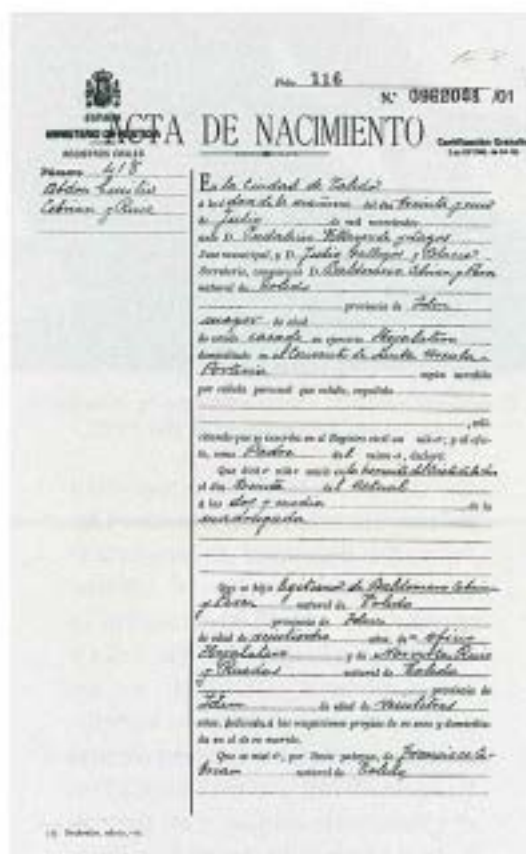 Folio 116
N.º 0962001 /01
ESPAÑA
MINISTERIO DE JUSTICIA
REGISTROS CIVILES
ACTA DE NACIMIENTO
Certificación Gratuita
Número 418
Abdon Emilio
Cebrian y Ruiz
En la Ciudad de Toledo
á las doce de la mañana del día treinta y uno
de Julio
Juez municipal, y D. Julio Gallegos y
Secretario, compareció D. Baldomero Cebrian y Perez
natural de Toledo
provincia de Idem
mayor de edad
de estado casado su ejercicio Hojalatero
domiciliado en el Convento de Santa Ursula
Porteria según acredita
por cédula personal que exhibe, expedida
, soli-
citando que se inscriba en el Registro civil un niño, y al efec-
to, como Padre del mismo, declaró:
Que dicho niño nació
el día treinta del Actual
á las dos y media de la
madrugada
Que es hijo legitimo de Baldomero Cebrian
y Perez natural de Toledo
provincia de Idem
de edad de veintiocho años, de oficio
Hojalatero y de Ruiz
y Ruedas natural de Toledo
provincia de
Idem de edad de veintitres
años, dedicada á las ocupaciones propias de su sexo y domicilia-
da en el de su marido.
Que es nieto, por línea paterna, de Francisco Ce-
brian natural de Toledo